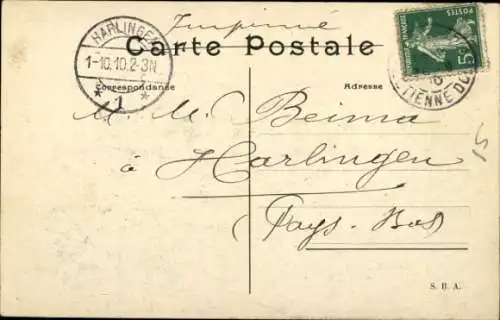 Imprimé
Carte Postale
HARLINGEN
1-10.10.2-3N
1
POSTES
5
ETIENNE DU
Correspondance
Adresse
M. M. Beima
à Harlingen
Pays-Bas
15
S. B. A.